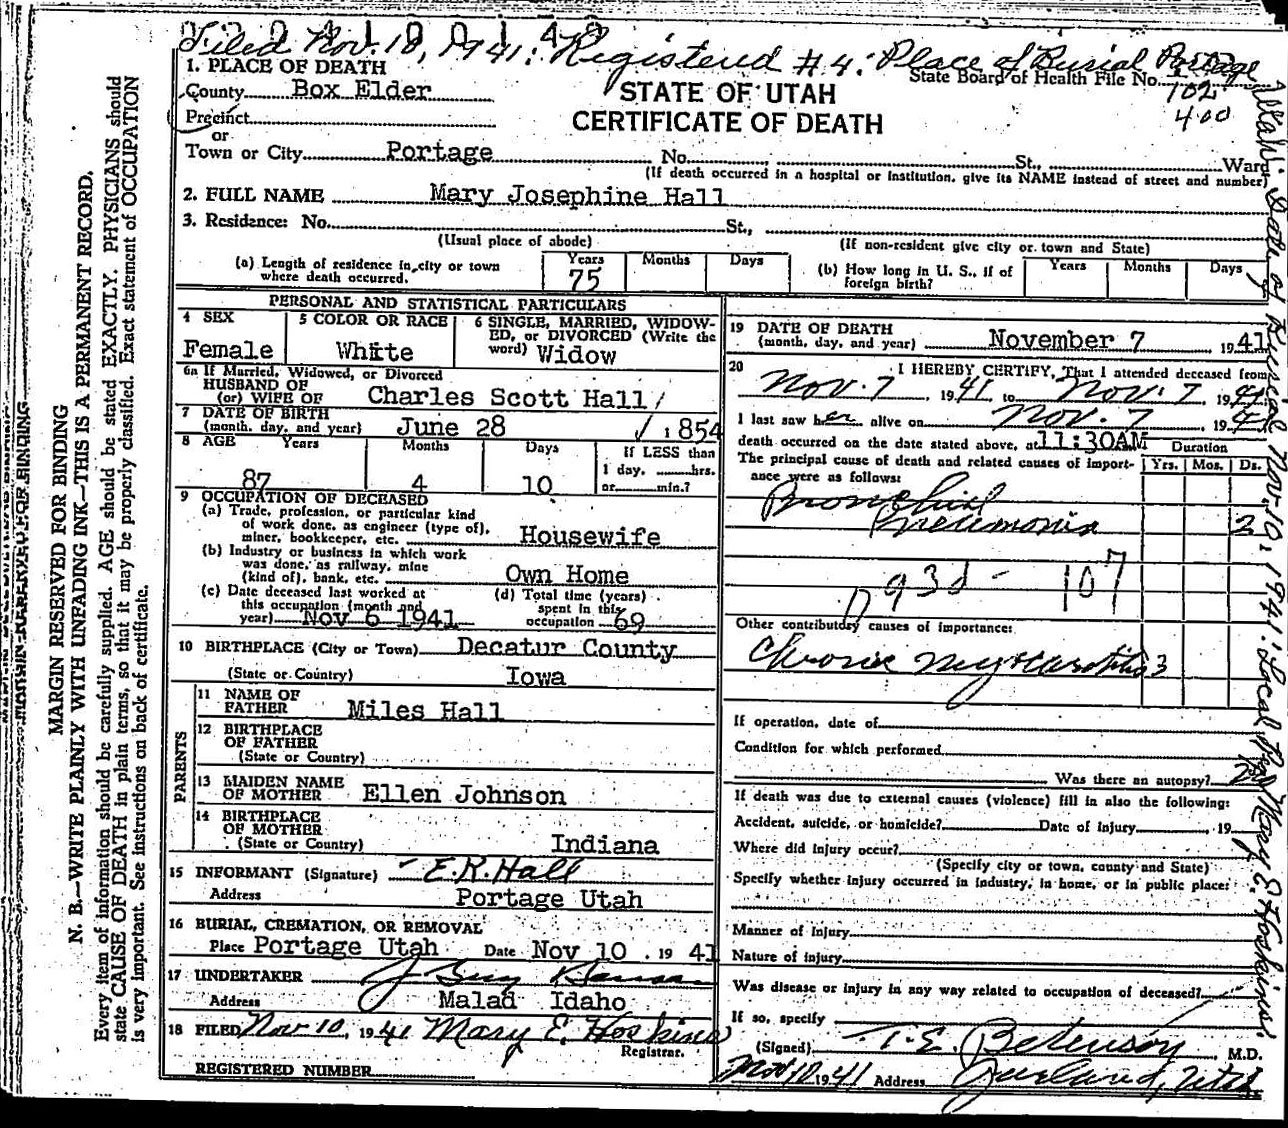 Filed Nov. 10, 1941. Registered #4. Place of Burial Portage
Utah. Date of Burial Nov. 10, 1941. Local Reg. Mary E. Hoskins
State Board of Health File No.
102
400
STATE OF UTAH
CERTIFICATE OF DEATH
1. PLACE OF DEATH
County Box Elder
Precinct
or
Town or City Portage No. St., Ward
(If death occurred in a hospital or institution, give its NAME instead of street and number)
2. FULL NAME Mary Josephine Hall
3. Residence: No. St.,
(Usual place of abode) (If non-resident give city or town and State)
(a) Length of residence in city or town where death occurred. Years 75 Months Days
(b) How long in U. S., if of foreign birth? Years Months Days
PERSONAL AND STATISTICAL PARTICULARS
4 SEX Female
5 COLOR OR RACE White
6 SINGLE, MARRIED, WIDOWED, or DIVORCED (Write the word) Widow
6a If Married, Widowed, or Divorced
HUSBAND OF
(or) WIFE OF Charles Scott Hall
7 DATE OF BIRTH
(month, day, and year) June 28 1854
8 AGE Years 87 Months 4 Days 10 If LESS than
1 day, hrs.
or min.?
9 OCCUPATION OF DECEASED
(a) Trade, profession, or particular kind
of work done, as engineer (type of),
miner, bookkeeper, etc. Housewife
(b) Industry or business in which work
was done, as railway, mine
(kind of), bank, etc. Own Home
(c) Date deceased last worked at
this occupation (month and
year) Nov 6 1941
(d) Total time (years)
spent in this
occupation 69
10 BIRTHPLACE (City or Town) Decatur County
(State or Country) Iowa
PARENTS
11 NAME OF
FATHER Miles Hall
12 BIRTHPLACE
OF FATHER
(State or Country)
13 MAIDEN NAME
OF MOTHER Ellen Johnson
14 BIRTHPLACE
OF MOTHER
(State or Country) Indiana
15 INFORMANT (Signature) E.K. Hall
Address Portage Utah
16 BURIAL, CREMATION, OR REMOVAL
Place Portage Utah Date Nov 10 . 19 41
17 UNDERTAKER J Guy
Address Malad Idaho
18 FILED Nov 10, 1941 Mary E. Hoskins
Registrar.
REGISTERED NUMBER
19 DATE OF DEATH
(month, day, and year) November 7 1941
20 I HEREBY CERTIFY, That I attended deceased from
Nov. 7, 1941 to Nov. 7 1941
I last saw her alive on Nov. 7, 1941
death occurred on the date stated above, at 11:30AM Duration
The principal cause of death and related causes of importance were as follows: Yrs. Mos. Ds.
Bronchial
Pneumonia 2
93d - 107
Other contributory causes of importance:
Chronic Myocarditis 3
If operation, date of
Condition for which performed
Was there an autopsy? No
If death was due to external causes (violence) fill in also the following:
Accident, suicide, or homicide? Date of injury , 19
Where did injury occur?
(Specify city or town, county and State)
Specify whether injury occurred in industry, in home, or in public place:
Manner of Injury
Nature of injury
Was disease or injury in any way related to occupation of deceased?
If so, specify
(Signed) T. E. Betenson, M.D.
Nov 10 1941 Address Garland, Utah
MARGIN RESERVED FOR BINDING
N. B.—WRITE PLAINLY WITH UNFADING INK—THIS IS A PERMANENT RECORD.
Every item of information should be carefully supplied. AGE should be stated EXACTLY. PHYSICIANS should
state CAUSE OF DEATH in plain terms, so that it may be properly classified. Exact statement of OCCUPATION
is very important. See instructions on back of certificate.